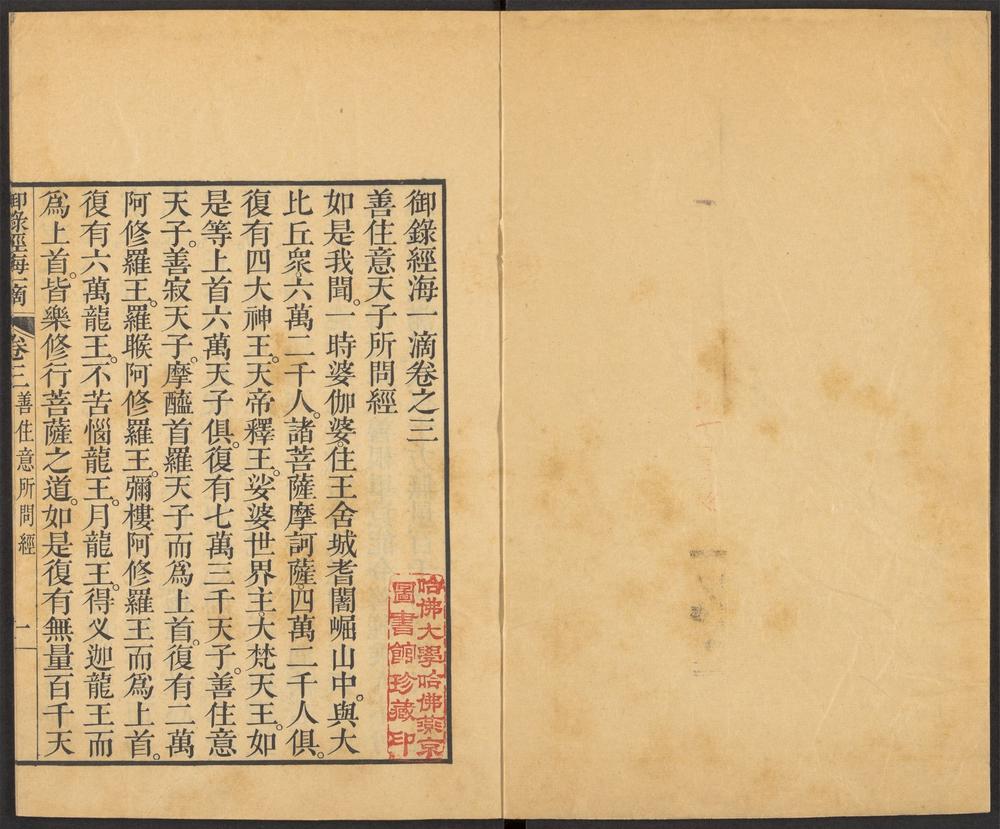 御錄經海一滴卷之三
善住意天子所問經
如是我聞。一時婆伽婆。住王舍城耆闍崛山中。與大
比丘衆。六萬二千人。諸菩薩摩訶薩。四萬二千人俱。
復有四大神王。天帝釋王。娑婆世界主。大梵天王。如
是等上首六萬天子俱。復有七萬三千天子。善住意
天子。善寂天子。摩醯首羅天子而爲上首。復有二萬
阿修羅王。羅睺阿修羅王。彌樓阿修羅王而爲上首。
復有六萬龍王。不苦惱龍王。月龍王。得叉迦龍王而
爲上首。皆樂修行菩薩之道。如是復有無量百千天
御錄經海一滴 卷三善住意所問經 一
哈佛大學哈佛燕京
圖書館珍藏印